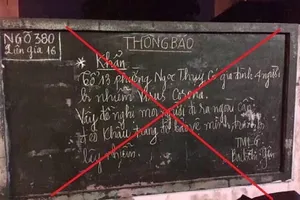 NGÕ 380
Liên gia 16
THÔNG BÁO
* Khẩn
Tổ 13 phường Ngọc Thụy Có gia đình 4 người
bị nhiễm Virus Corona.
Vậy đề nghị mọi người đi ra ngoài cần
có khẩu trang tự bảo vệ mình, tránh bị
lây nhiễm.